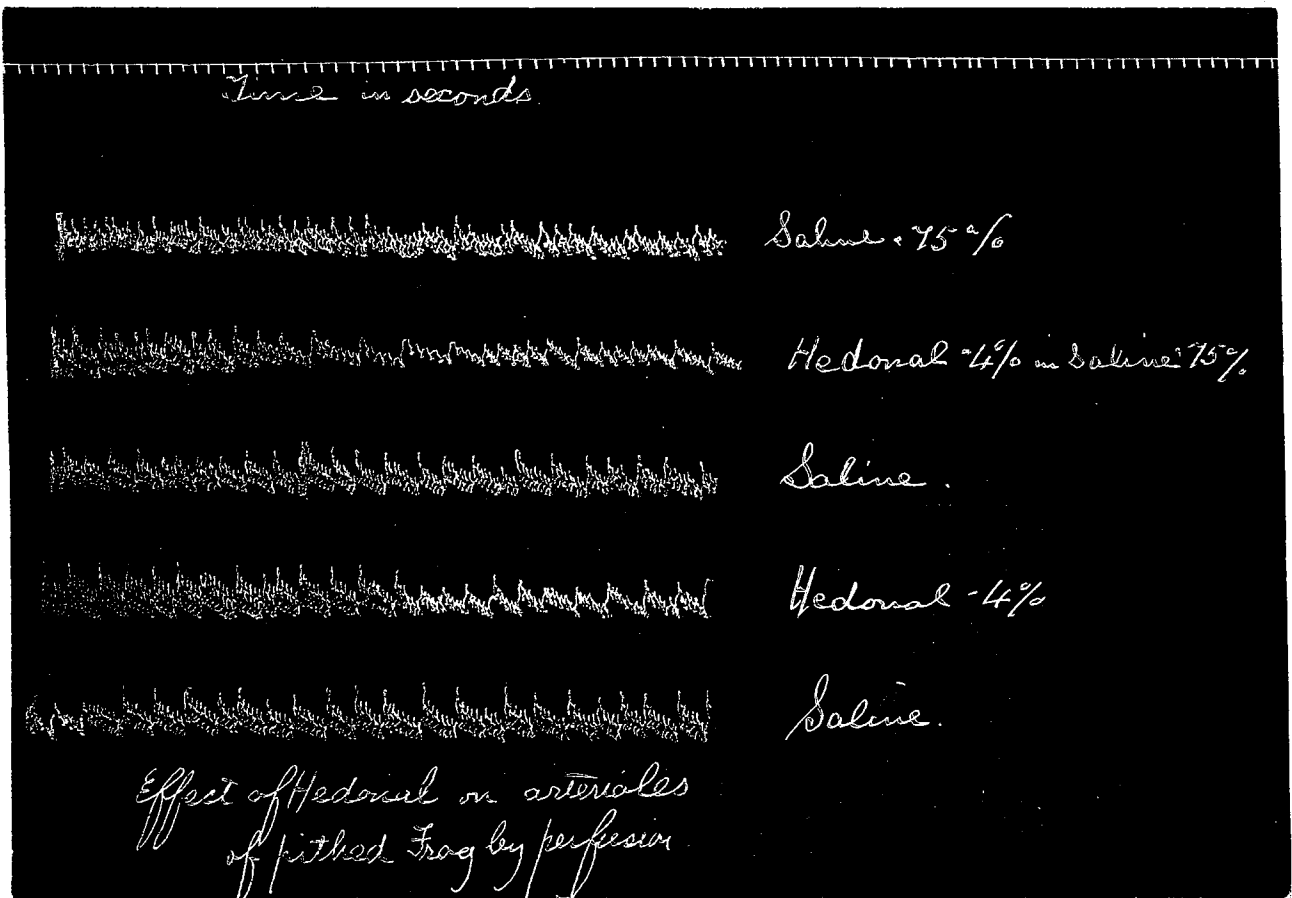 Time in seconds.
Saline ·75%
Hedonal ·4% in Saline ·75%
Saline.
Hedonal ·4%
Saline.
Effect of Hedonal on arterioles
of pithed Frog by perfusion